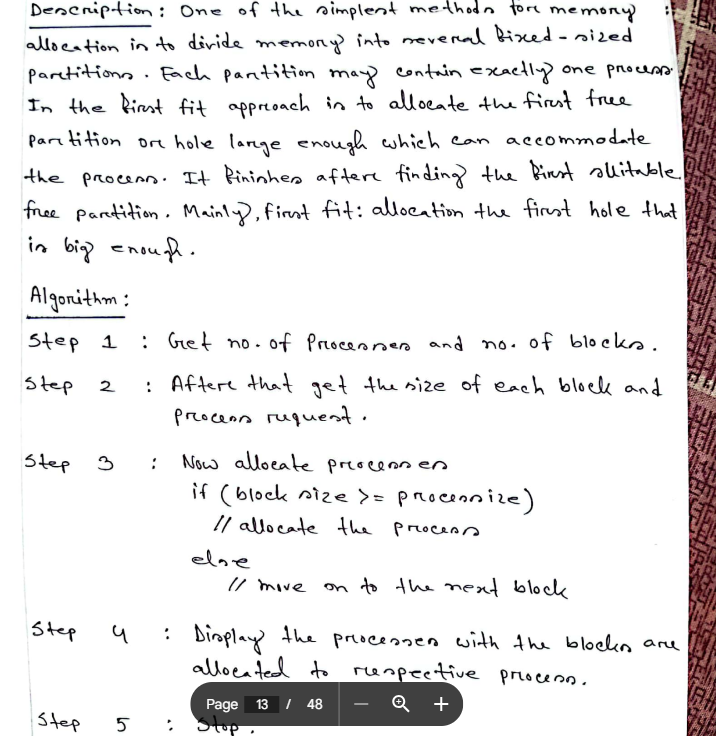 Description: One of the simplest methods for memory
allocation is to divide memory into several fixed-sized
partitions. Each partition may contain exactly one process.
In the first fit approach is to allocate the first free
partition or hole large enough which can accommodate
the process. It finishes after finding the first suitable
free partition. Mainly, first fit: allocation the first hole that
is big enough.
Algorithm:
Step 1 : Get no. of Processes and no. of blocks.
Step 2 : After that get the size of each block and
process request.
Step 3 : Now allocate processes
if (block size >= processize)
// allocate the process
else
// move on to the next block
Step 4 : Display the processes with the blocks are
allocated to respective process.
Page 13 / 48 — +
Step 5 : Stop.